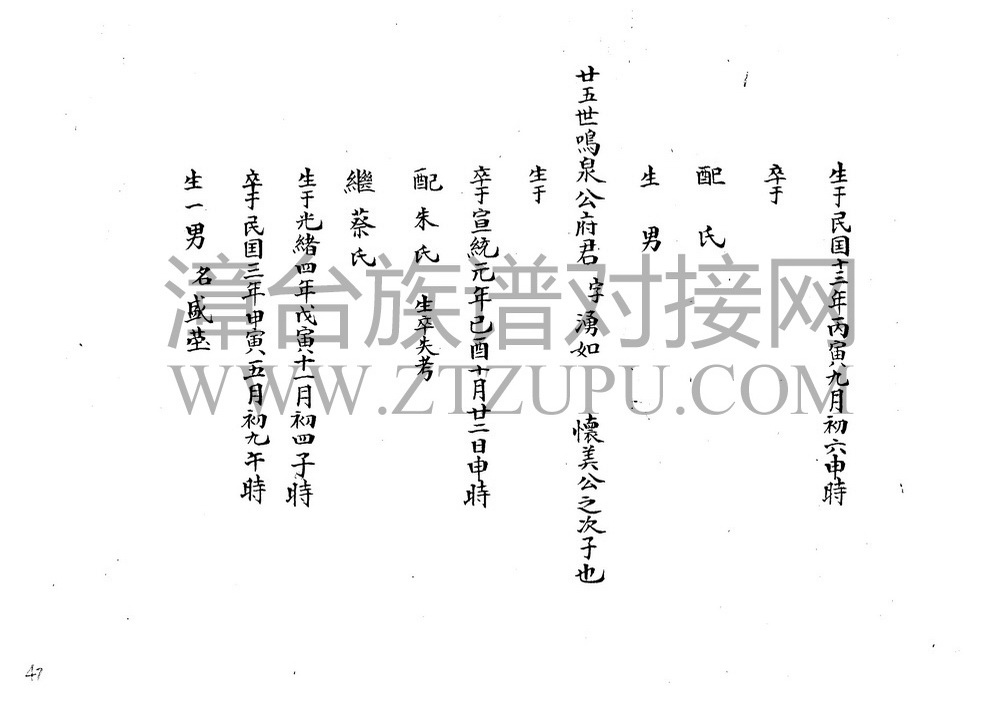 生于民国十三年丙寅九月初六申時
卒于
配 氏
生 男
廿五世鳴泉公府君 字湧如 懷美公之次子也
生于
卒于宣統元年己酉十月廿二日申時
配朱氏 生卒失考
繼蔡氏
生于光緒四年戊寅十一月初四子時
卒于民国三年甲寅五月初九午時
生一男 名盛莖
漳台族谱对接网
WWW.ZTZUPU.COM
47